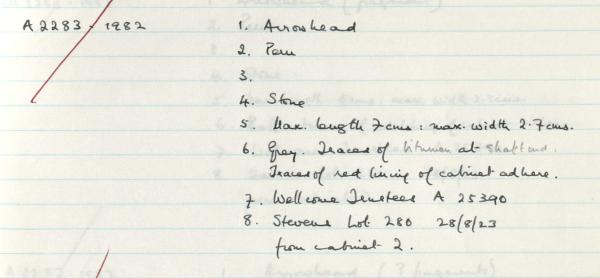 A 2283 - 1982 1. Arrowhead
2. Peru
3.
4. Stone
5. Max. length 7cms : max. width 2.7cms.
6. Grey. Traces of bitumen at shaft end.
Traces of red lining of cabinet adhere.
7. Wellcome Trustees A 25390
8. Stevens Lot 280 28/8/23
from cabinet 2.
1. Arrowhead (3 fragments)